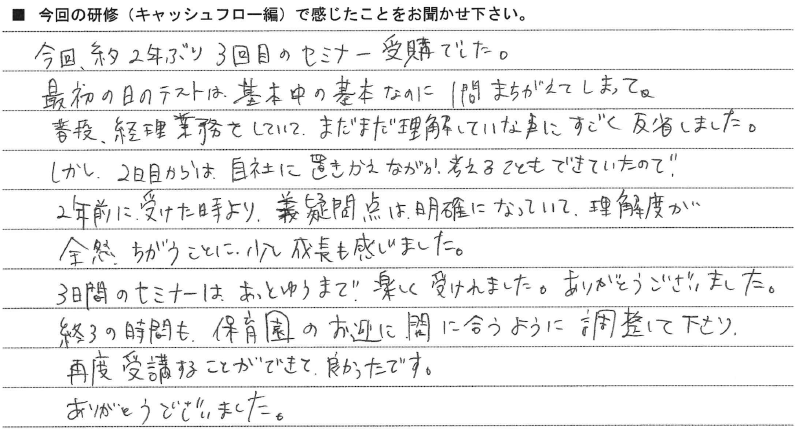 ■ 今回の研修（キャッシュフロー編）で感じたことをお聞かせ下さい。
今回、約2年ぶり 3回目のセミナー受購でした。
最初の日のテストは、基本中の基本なのに 1問まちがえてしまって。
普段、経理業務をしていて、まだまだ理解していな事に すごく反省しました。
しかし、2日目からは、自社に置きかえながが、考えることもできていたので、
2年前に受けた時より、義疑問点は、明確になっていて、理解度が
全然、ちがうことに、少し成長も感じました。
3日間のセミナーは、あっとゆうまで、楽しく受けれました。ありがとうございました。
終了の時間も、保育園のお迎に間に合うように調整して下さり、
再度受講することができて、良かったです。
ありがとうございました。